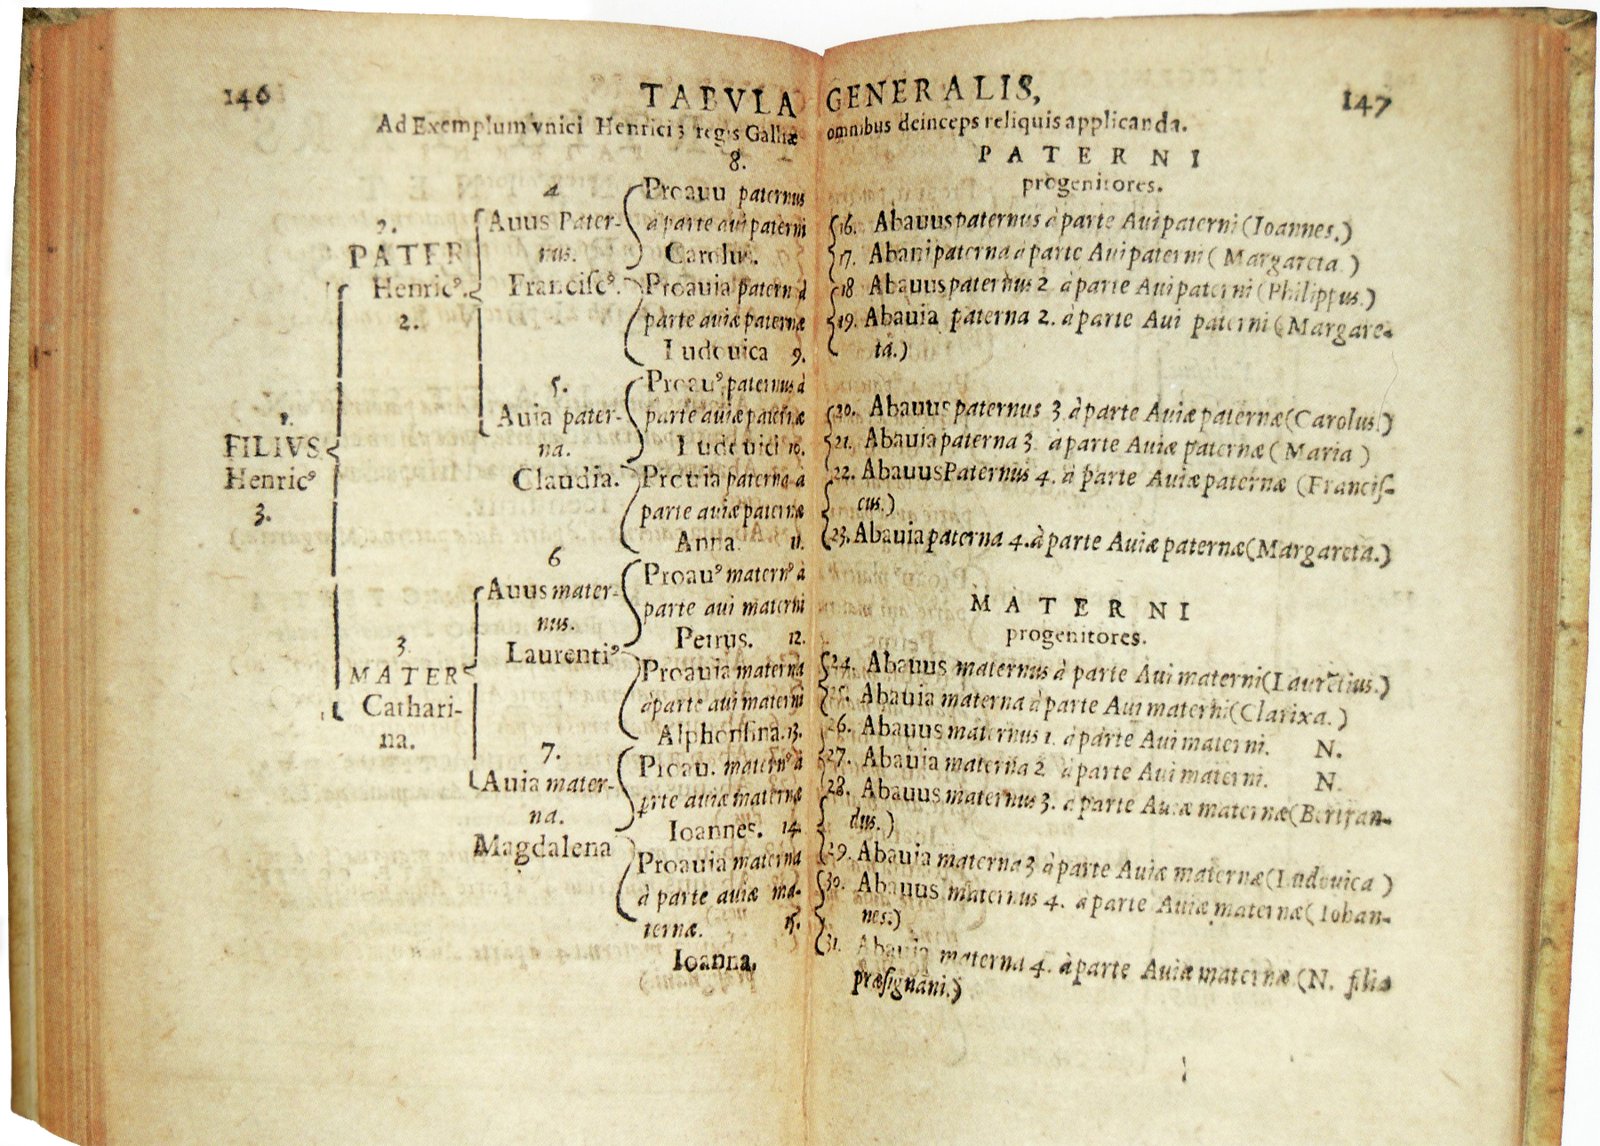 146
TABVLA GENERALIS,
147
Ad Exemplum vnici Henrici 3 regis Galliæ omnibus deinceps reliquis applicanda.
1.
FILIVS
Henricꝰ
3.
2.
PATER
Henricꝰ.
2.
3.
MATER
Cathari-
na.
4
Auus Pater-
nus.
Franciscꝰ.
5.
Auia pater-
na.
Claudia.
6
Auus mater-
nus.
Laurentiꝰ
7.
Auia mater-
na.
Magdalena
8.
Proauu paternus
à parte aui paterni
Carolus.
Proauia paterna
parte auiæ paternæ
Ludouica 9.
Proauꝰ paternus à
parte auiæ paternæ
Ludouici 10.
paterna a
parte auiæ paternæ
Anna. 11.
Proauꝰ maternꝰ à
parte aui materni
Petrus. 12.
Proauia materna
à parte aui materni
Alphonsina. 13.
Proau. maternꝰ à
prte auiæ maternæ
Ioannes. 14.
Proauia materna
à parte auiæ ma-
ternæ. 15.
Ioanna.
PATERNI
progenitores.
16. Abauus paternus à parte Aui paterni (Ioannes.)
17. Abani paterna à parte Aui paterni (Margareta.)
18 Abauus paternus 2 à parte Aui paterni (Philippus.)
19. Abauia paterna 2. à parte Aui paterni (Margare-
ta.)
20. Abauus paternus 3 à parte Auiæ paternæ (Carolus.)
21. Abauia paterna 3. à parte Auiæ paternæ (Maria)
22. Abauus Paternus 4. à parte Auiæ paternæ (Francis-
cus.)
23. Abauia paterna 4. à parte Auiæ paternæ (Margareta.)
MATERNI
progenitores.
24. Abauus maternus à parte Aui materni (Laurētius.)
25. Abauia materna à parte Aui materni (Clarixa.)
26. Abauus maternus 1. à parte Aui materni. N.
27. Abauia materna 2 à parte Aui materni. N.
28. Abauus maternus 3. à parte Auiæ maternæ (Bertran-
dus.)
29. Abauia materna 3 à parte Auiæ maternæ (Ludouica)
30. Abauus maternus 4. à parte Auiæ maternæ (Iohan-
nes.)
31. Abauia materna 4. à parte Auiæ maternæ (N. filia
præsignani.)